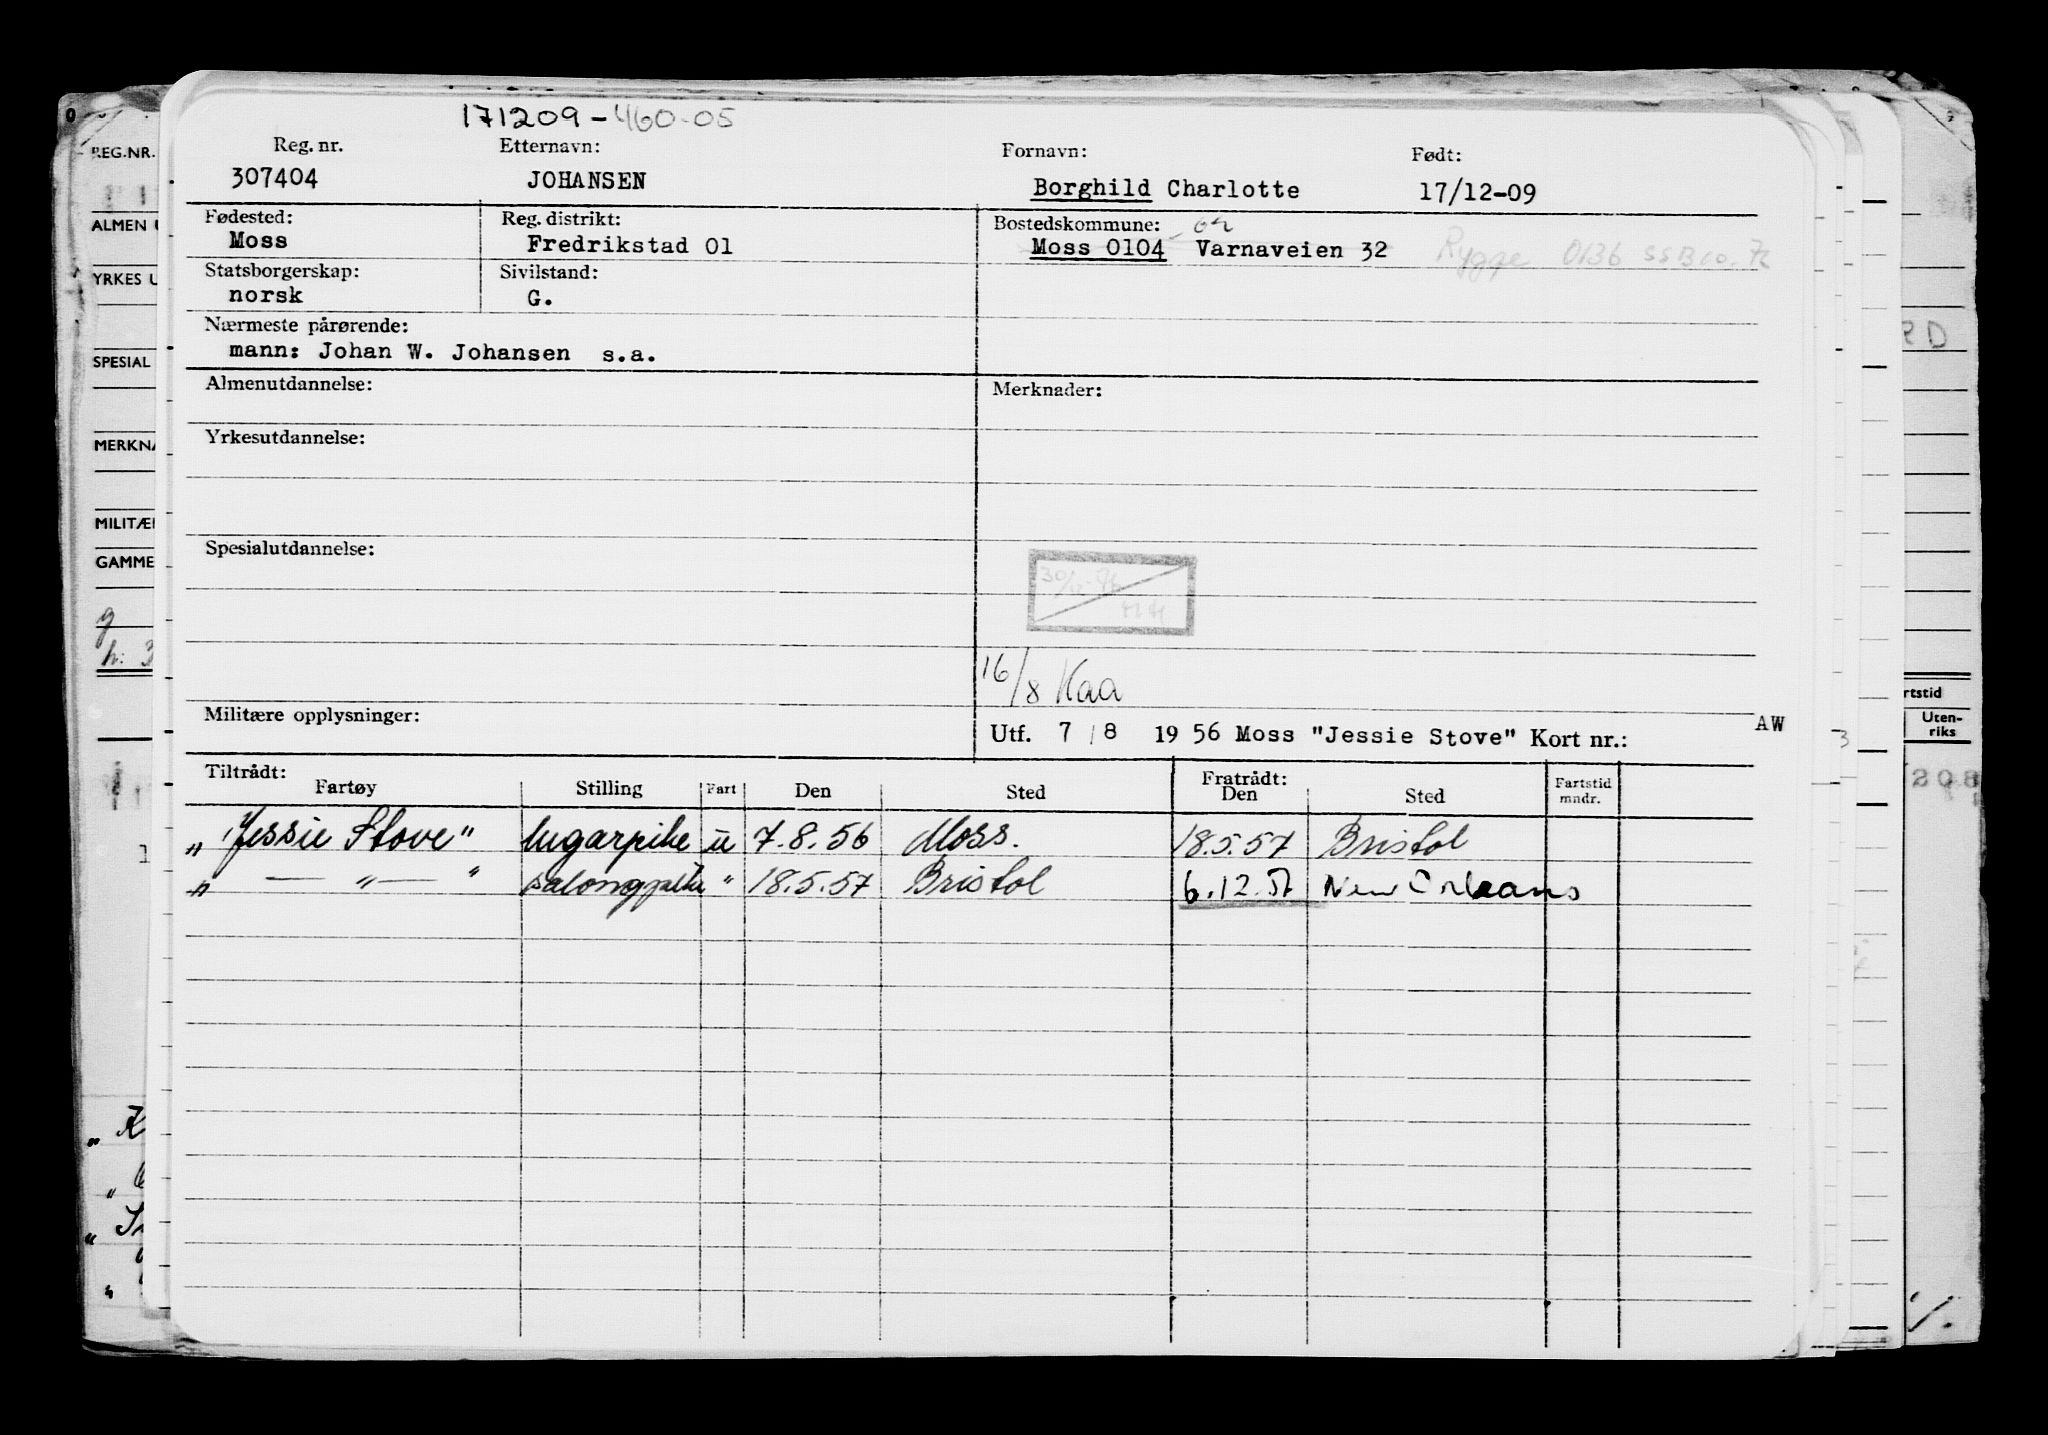 171209-460-05
Reg. nr. Etternavn: Fornavn: Født:
307404 JOHANSEN Borghild Charlotte 17/12-09
Fødested: Reg. distrikt: Bostedskommune:
Moss Fredrikstad 01 Moss 0104 Varnaveien 32 Rygge 0136
Statsborgerskap: Sivilstand:
norsk G.
Nærmeste pårørende:
mann: Johan W. Johansen s.a.
Almenutdannelse: Merknader:
Yrkesutdannelse:
Spesialutdannelse:
16/8 Kaa
Militære opplysninger:
Utf. 7/8 1956 Moss "Jessie Stove" Kort nr.: AW
Tiltrådt: Fratrådt:
Fartøy Stilling Fart Den Sted Den Sted Fartstid mndr.
„ Jessie Stove" lugarpike u 7.8.56 Moss. 18.5.57 Bristol
„ — „ — " salongpike " 18.5.57 Bristol 6.12.57 New Orleans
REG.NR.
ALMEN U
YRKES U
SPESIAL
MERKNA
MILITÆR
GAMME
RD
rtstid
Uten-
riks
208